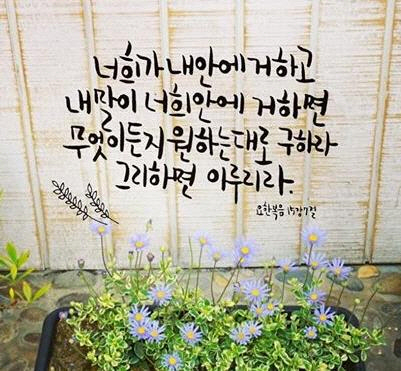 너희가 내안에 거하고
내 말이 너희안에 거하면
무엇이든지 원하는대로 구하라
그리하면 이루리라.
요한복음 15장7절